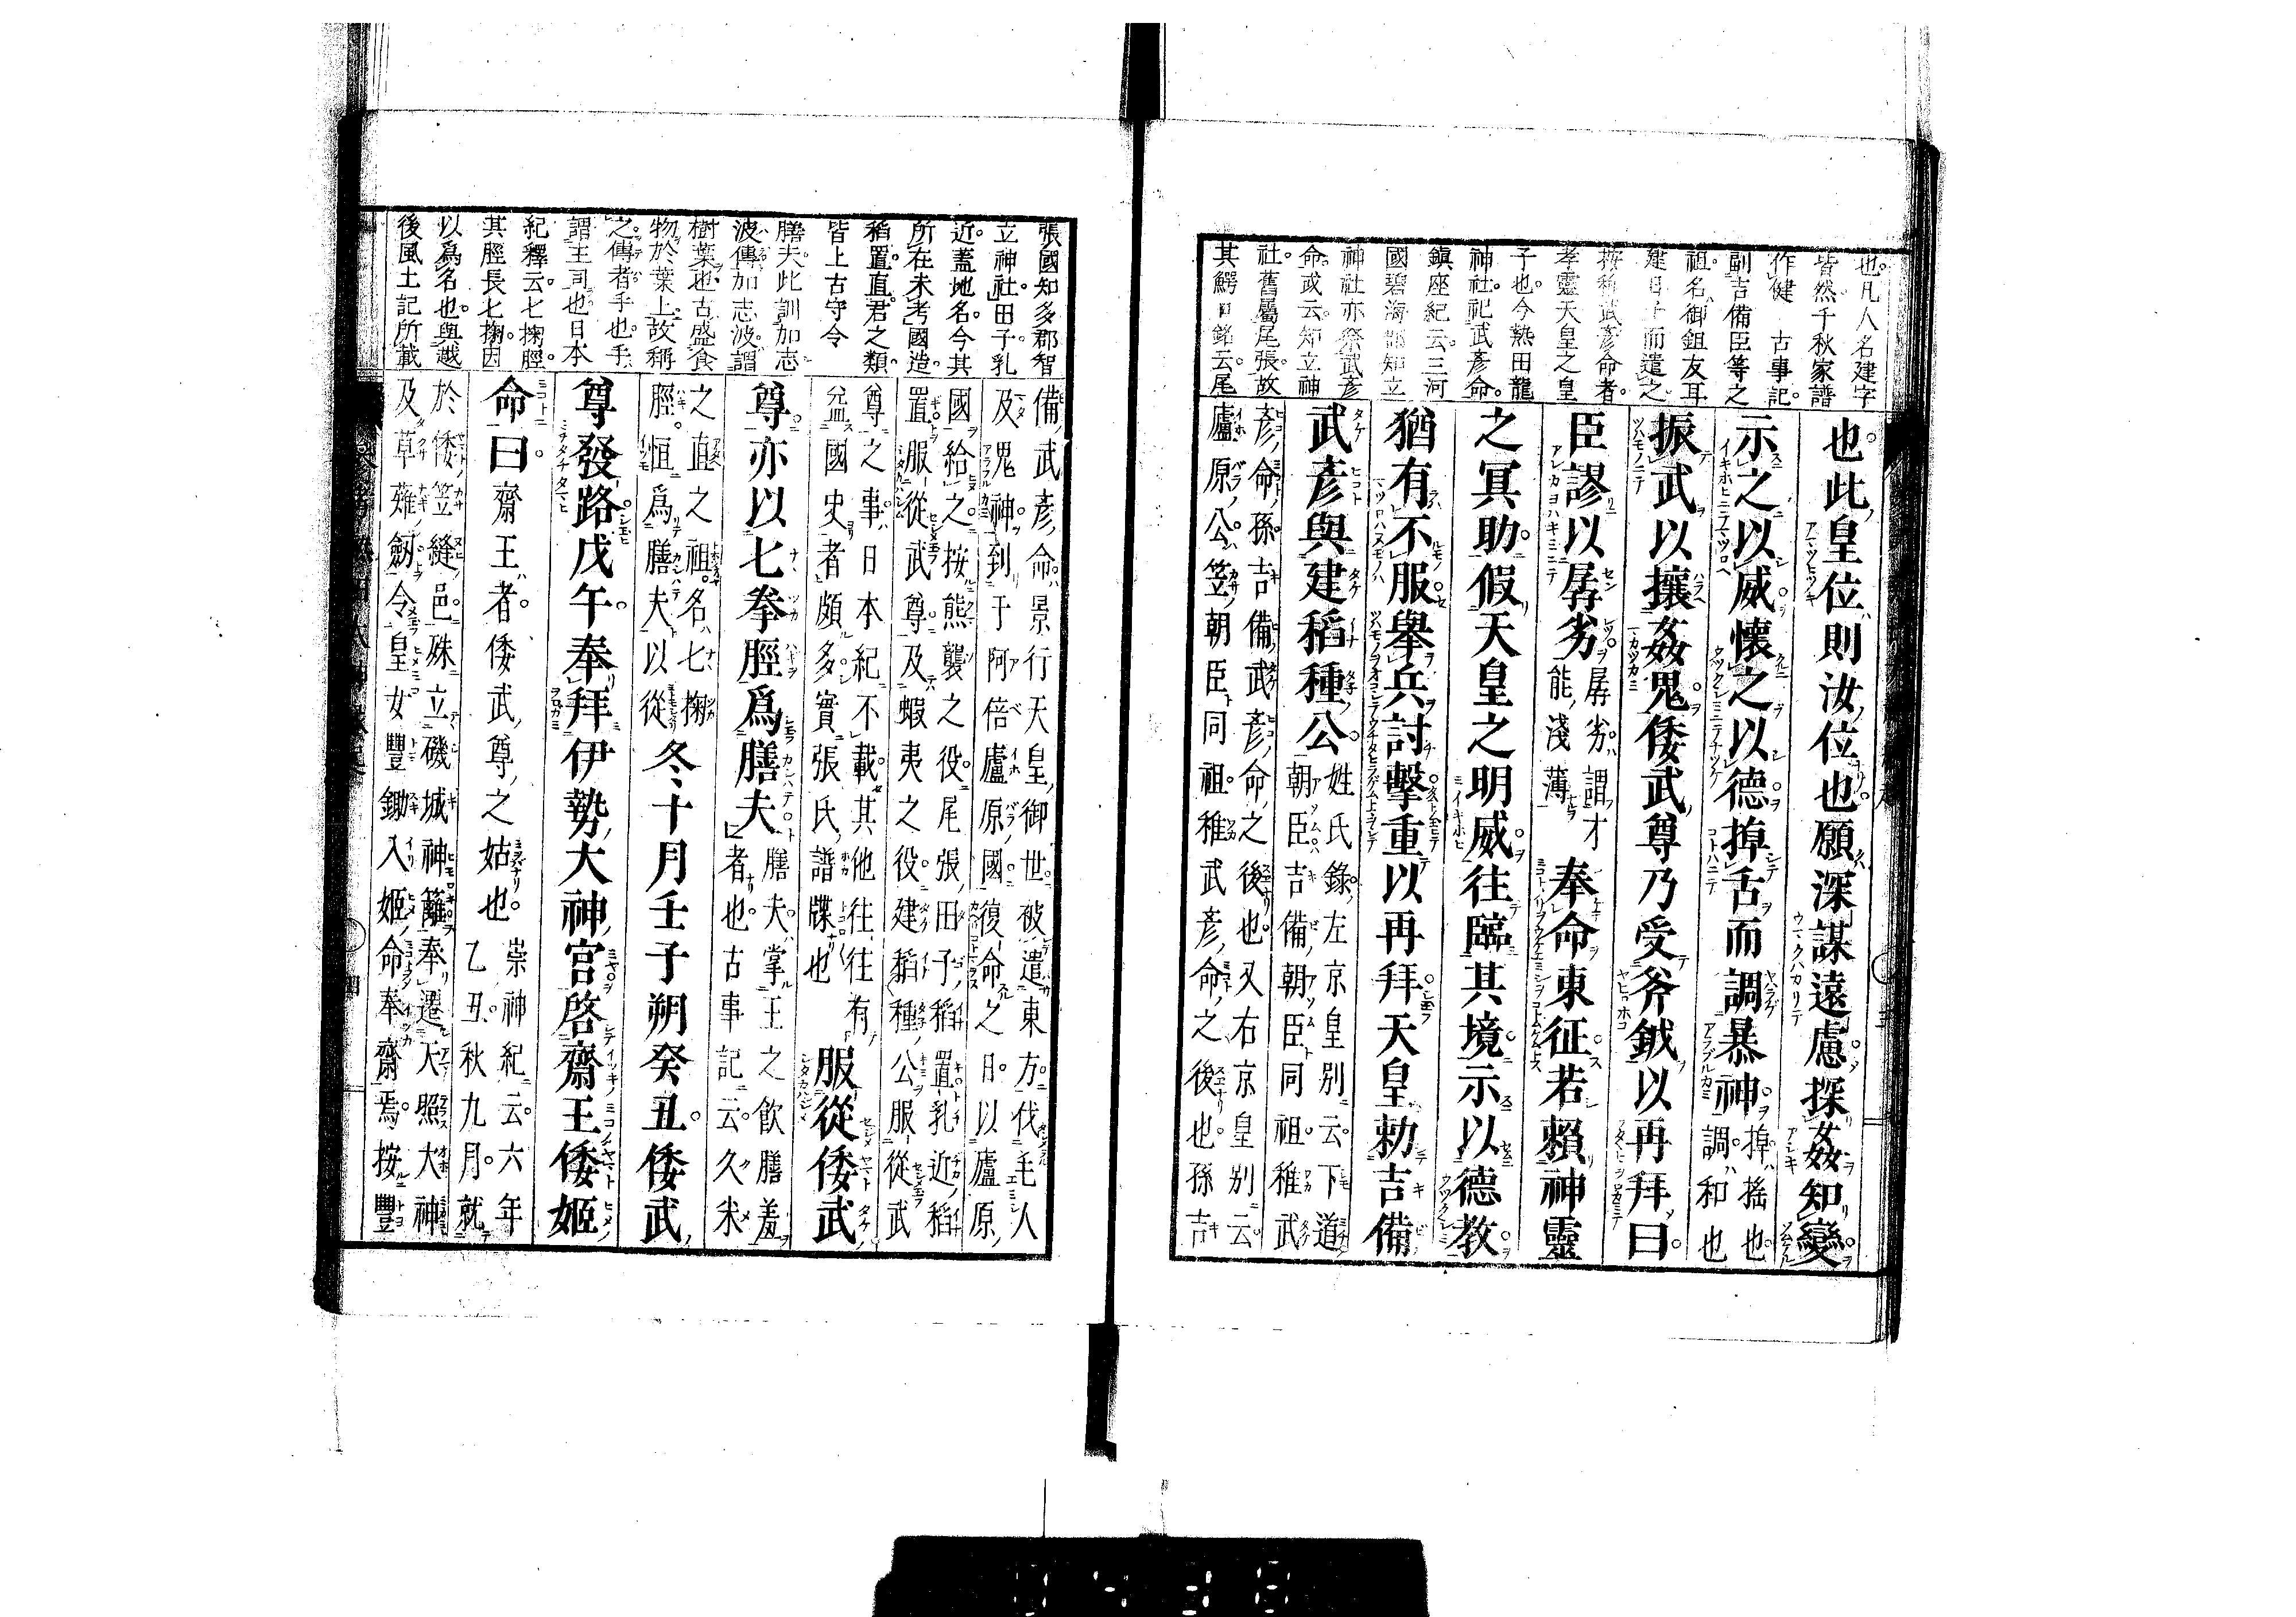 也凡人名建字
皆然千秋家譜
作健　古事記
副吉備臣等之
祖名御鉏友耳
建日子而遣之
按稚武彦命者
孝靈天皇之皇
子也今熱田龍
神社祀武彦命
鎭座紀云三河
國碧海郡知立
神社亦祭武彦
命或云知立神
社舊屬尾張故
其鰐口銘云尾
也此皇位則汝位也願深謀遠慮探姦知變
示之以威懷之以德掉舌而調暴神掉搖也調和也
振武以攘姦鬼倭武尊乃受斧鉞以再拜曰
臣謬以孱劣孱劣謂才能淺薄奉命東征若賴神靈
之冥助假天皇之明威往臨其境示以德教
猶有不服擧兵討擊重以再拜天皇勅吉備
武彦與建稻種公姓氏錄左京皇別云下道朝臣吉備朝臣同祖稚武
彦命孫吉備武彦命之後也又右京皇別云
廬原公笠朝臣同祖稚武彦命之後也孫吉
張國知多郡智
立神社田子乳
近蓋地名今其
所在未考國造
稻置直君之類
皆上古守令
膳夫此訓加志
波傳加志波謂
樹葉也古盛食
物於葉上故稱
之傳者手也手
謂主司也日本
紀釋云七掬脛
其脛長七掬因
以爲名也與越
後風土記所載
備武彦命景行天皇御世被遣東方伐毛人
及鬼神到于阿倍廬原國復命之日以廬原
國給之按熊襲之役尾張田子稻置乳近稻
置服從武尊及蝦夷之役建稻種公服從武
尊之事日本紀不載其他往往有
益國史者頗多實張氏譜牒也服從倭武
尊亦以七拳脛爲膳夫膳夫掌王之飲膳羞者也古事記云久米
之直之祖名七掬
脛恒爲膳夫以從冬十月壬子朔癸丑倭武
尊發路戊午奉拜伊勢大神宮啓齋王倭姬
命曰齋王者倭武尊之姑也崇神紀云六年乙丑秋九月就
於倭笠縫邑殊立磯城神籬奉遷天照大神
及草薙劒令皇女豐鋤入姬命奉齋焉按豐